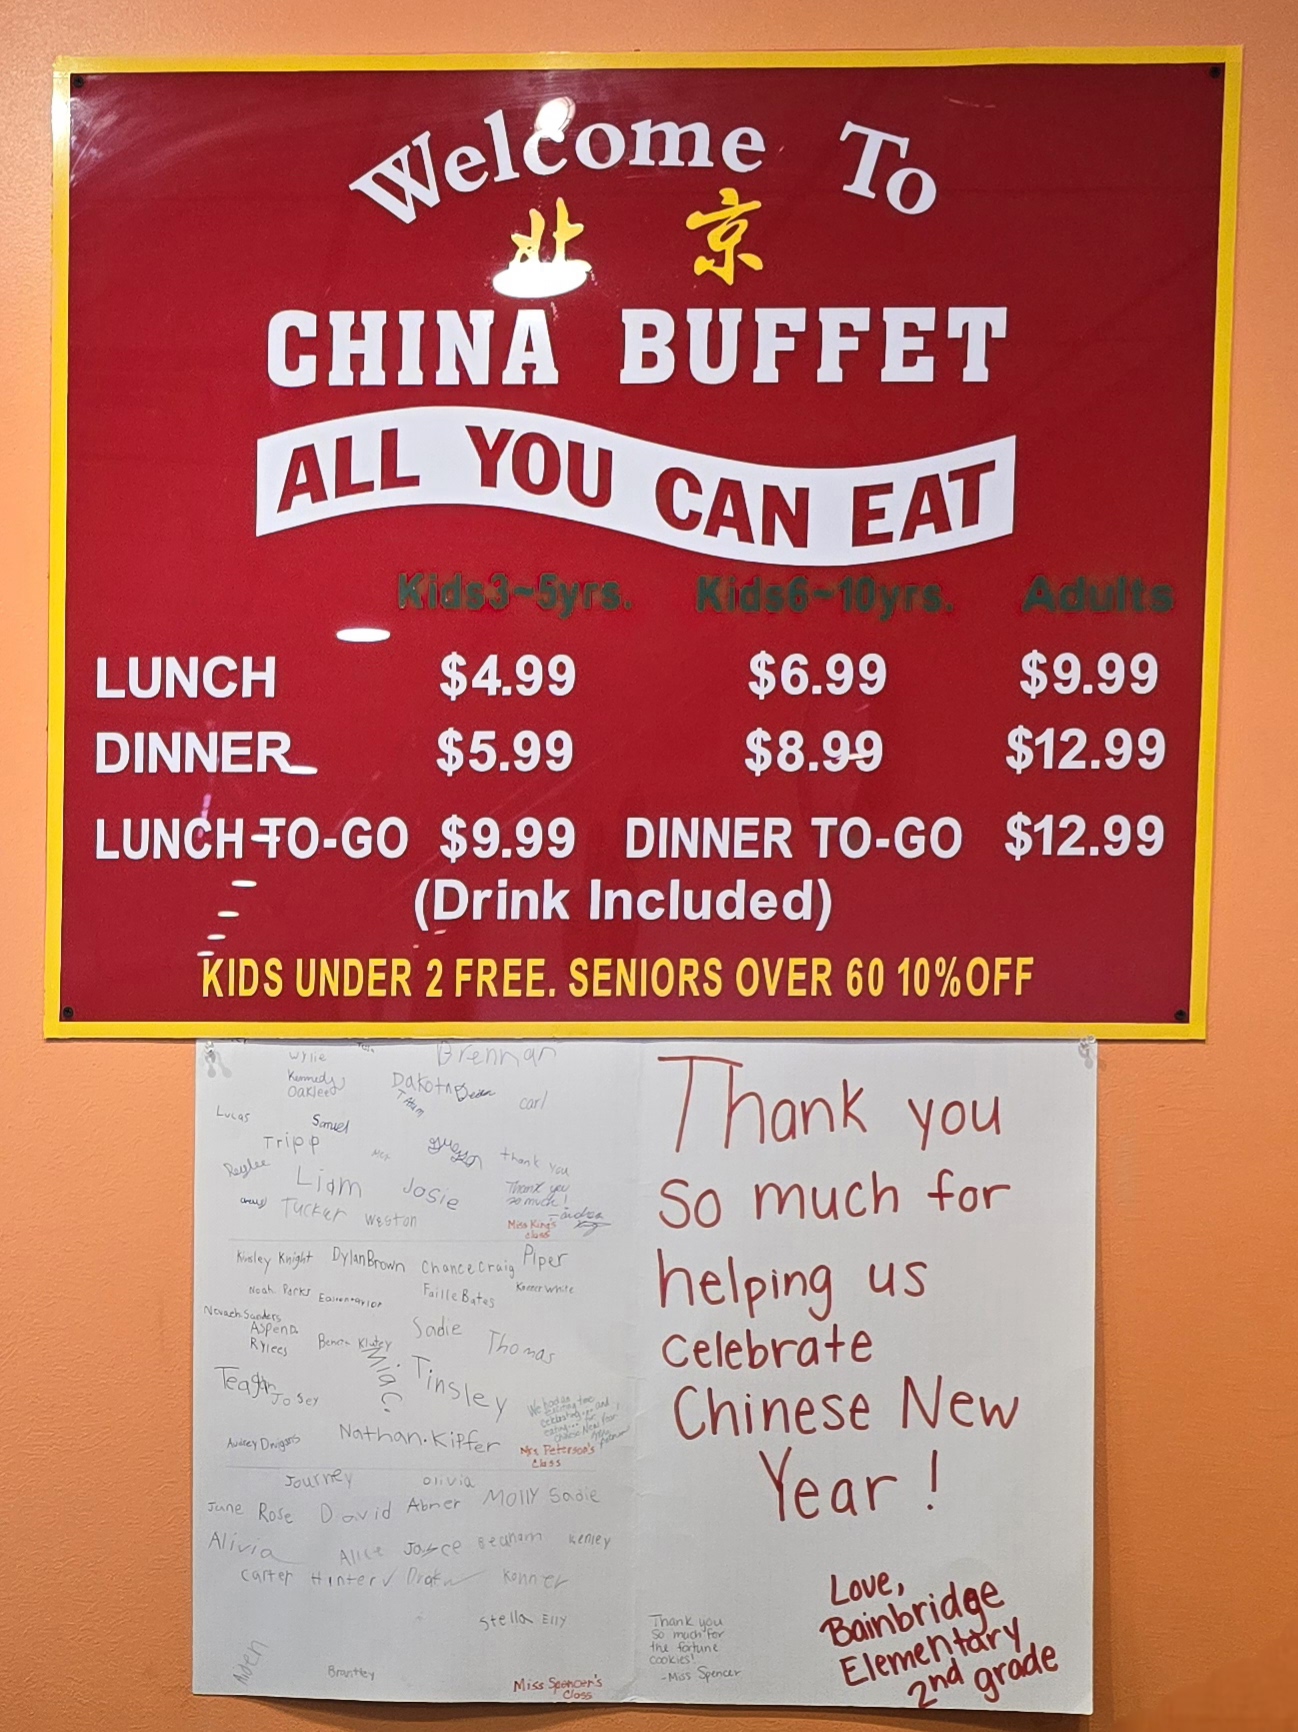 Welcome To
北 京
CHINA BUFFET
ALL YOU CAN EAT
Kids3~5yrs. Kids6~10yrs. Adults
LUNCH $4.99 $6.99 $9.99
DINNER $5.99 $8.99 $12.99
LUNCH-TO-GO $9.99 DINNER TO-GO $12.99
(Drink Included)
KIDS UNDER 2 FREE. SENIORS OVER 60 10%OFF
Wylie Brennan
Kennedy Dakota
Oaklee carl
Lucas Samuel
Tripp
Raylee thank you
Liam Josie Thank you
so much!
Tucker Weston
Miss King's
class
Kinsley Knight Dylan Brown Chance Craig Piper
Noah Parks Faille Bates Konner White
Novach Sanders
Aspen Sadie
Rylees Thomas
Teagan Tinsley
Josey
Nathan.Kiffer
Mrs. Peterson's
Class
Journey Olivia
June Rose David Abner Molly Sadie
Alivia Alice Joyce Beckham Kenley
Carter Hunter V Drake Konner
Stella Elly
Aden
Brantley
Miss Spencer's
Class
Thank you
so much for
helping us
celebrate
Chinese New
Year!
Thank you
so much for
the fortune
cookies!
-Miss Spencer
Love,
Bainbridge
Elementary
2nd grade